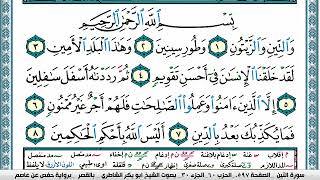 بِسْمِ اللَّهِ الرَّحْمَٰنِ الرَّحِيمِ
وَالتِّينِ وَالزَّيْتُونِ ١ وَطُورِ سِينِينَ ٢ وَهَٰذَا الْبَلَدِ الْأَمِينِ ٣
لَقَدْ خَلَقْنَا الْإِنسَانَ فِي أَحْسَنِ تَقْوِيمٍ ٤ ثُمَّ رَدَدْنَاهُ أَسْفَلَ سَافِلِينَ
٥ إِلَّا الَّذِينَ آمَنُوا وَعَمِلُوا الصَّالِحَاتِ فَلَهُمْ أَجْرٌ غَيْرُ مَمْنُونٍ ٦
فَمَا يُكَذِّبُكَ بَعْدُ بِالدِّينِ ٧ أَلَيْسَ اللَّهُ بِأَحْكَمِ الْحَاكِمِينَ ٨
سورة التين الصفحة ٥٩٧ الحزب ٦٠ الجزء ٣٠ بصوت الشيخ أبو بكر الشاطري بالقصر برواية حفص عن عاصم